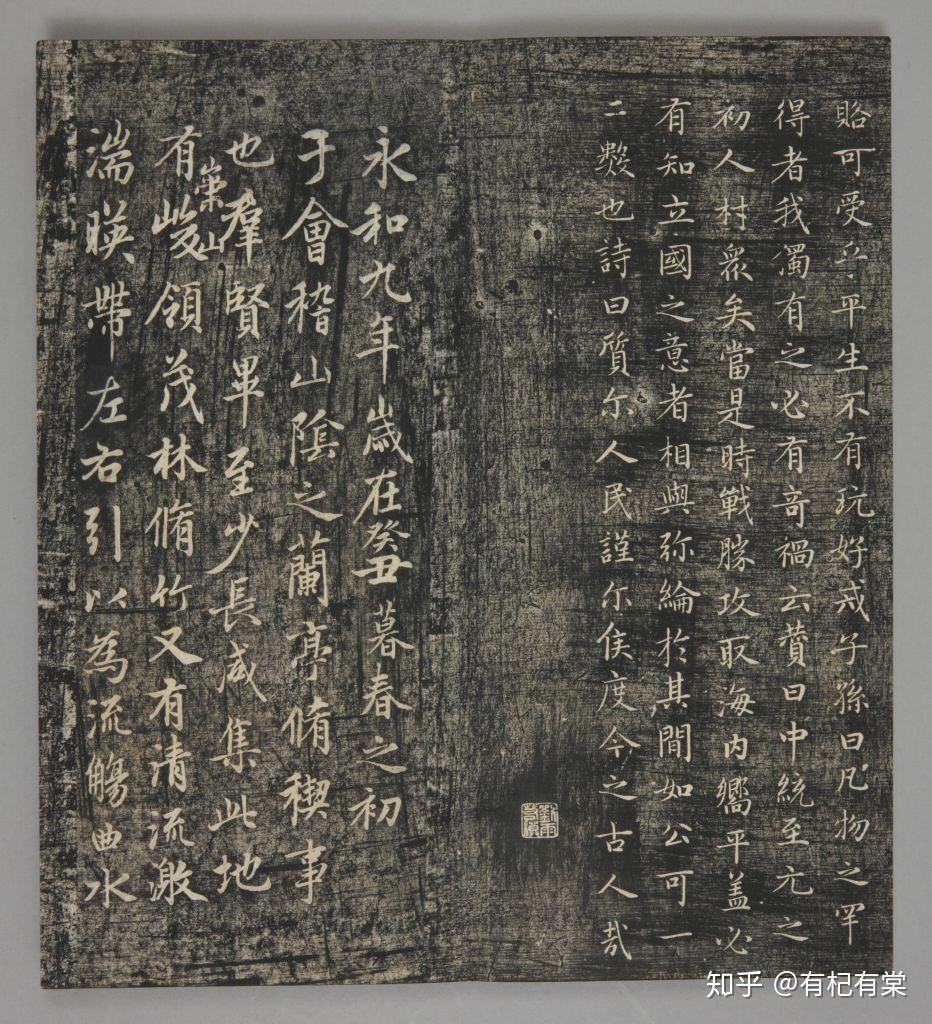 賂可受乎平生不有玩好戒子孫曰凡物之罕
得者我獨有之必有奇禍云贊曰中統至元之
初人材眾矣當是時戰勝攻取海內嚮平蓋必
有知立國之意者相與弥綸於其間如公可一
二數也詩曰質尔人民謹尔侯度今之古人哉
永和九年歲在癸丑暮春之初
于會稽山陰之蘭亭脩稧事
也羣賢畢至少長咸集此地
有崇山峻領茂林脩竹又有清流激
湍暎帶左右引以為流觴曲水
知乎 @有杞有棠